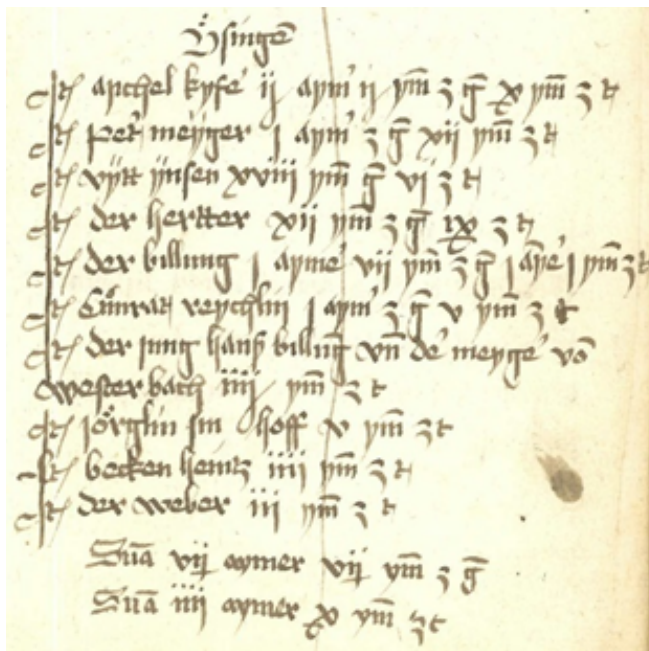 Ÿsingē
Jt) anthel kyfe' ij aym' ij ym̄ z g̅ x ym̄ z t
Jt) pet' meyger j aym' z g̅ xij ym̄ z t
Jt) vytt ynsen xviii ym̄ g̅ vi z t
Jt) der hertter xij ym̄ z g̅ ix z t
Jt) der billung j ayme' vij ym̄ z g̅ j aye' j ym̄ z t
Jt) Cůnrat reychlin j aym' z g̅ v ym̄ z t
Jt) der jung hanß billūg vn̄ de' meyge' vō
westerbach iiij ym̄ z t
Jt) jörglin im hoff v ym̄ z t
Jt) becken heintz iiij ym̄ z t
Jt) der weber iii ym̄ z t
Sūa vij aymer vij ym̄ z g̅
Sūa iiij aymer x ym̄ z t